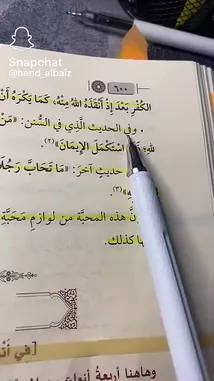 Snapchat
@hend_albaiz
٦٠٠
الكُفْرِ بَعْدَ إِذْ أَنْقَذَهُ اللهُ مِنْهُ، كَمَا يَكْرَهُ أَنْ
وفي الحديث الَّذي في السُّنن: «مَنْ
اسْتَكْمَلَ الإِيمَانَ»(٢).
حديث آخرَ: «مَا تَحَابَّ رَجُلَا
(٣).
هذه المحبَّة من لوازم مَحَبَّةِ
كذلك.
[في
وهاهنا أربعةُ أنواع